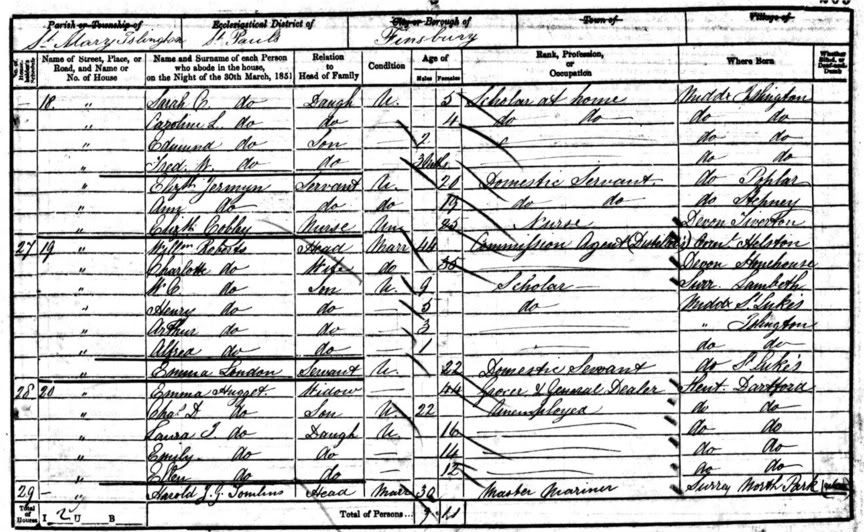 Parish or Township of Ecclesiastical District of City or Borough of Town of Village of
St. Mary Islington St. Pauls Finsbury
Name of Street, Place, or Road, and Name or No. of House Name and Surname of each Person who abode in the house, on the Night of the 30th March, 1851 Relation to Head of Family Condition Age of Males Females Rank, Profession, or Occupation Where Born Whether Blind, or Deaf-and-Dumb
18 " Sarah C. do Daugh U. 5 Scholar at home Middx Islington
" Caroline L. do do — 4 do do do do
" Edmund do Son — 2 do do
" Fred. W. do do 3 do do
" Elizth Jermyn Servant U. 20 Domestic Servant do Poplar
" Amy do do do 15 do do do Stepney
" Elizth Nurse Nurse Devon Tiverton
27 19 " Willm Roberts Head Marr 44 Commission Agent Helston
" Charlotte do Wife do 35 Devon Stonehouse
" W. C. do Son U. 9 Scholar Surr. Lambeth
" Henry do do — 5 do Middx St Luke's
" Arthur do do — 3 " Islington
" Alfred do do — 1 do do
" Emma London Servant U. 22 Domestic Servant do St Luke's
28 20 Emma Hugget Widow — 44 Grocer & General Dealer Kent Dartford
" Chas. D. do Son U 22 Unemployed do do
" Laura J. do Daugh U. 16 do do
" Emily do do — 14 do do
" Ellen do do 12 do do
29 — " Harold J. G. Tomlins Head Marr 30 Master Mariner Surrey North Park
Total of Houses I 2 U B Total of Persons... 9 11